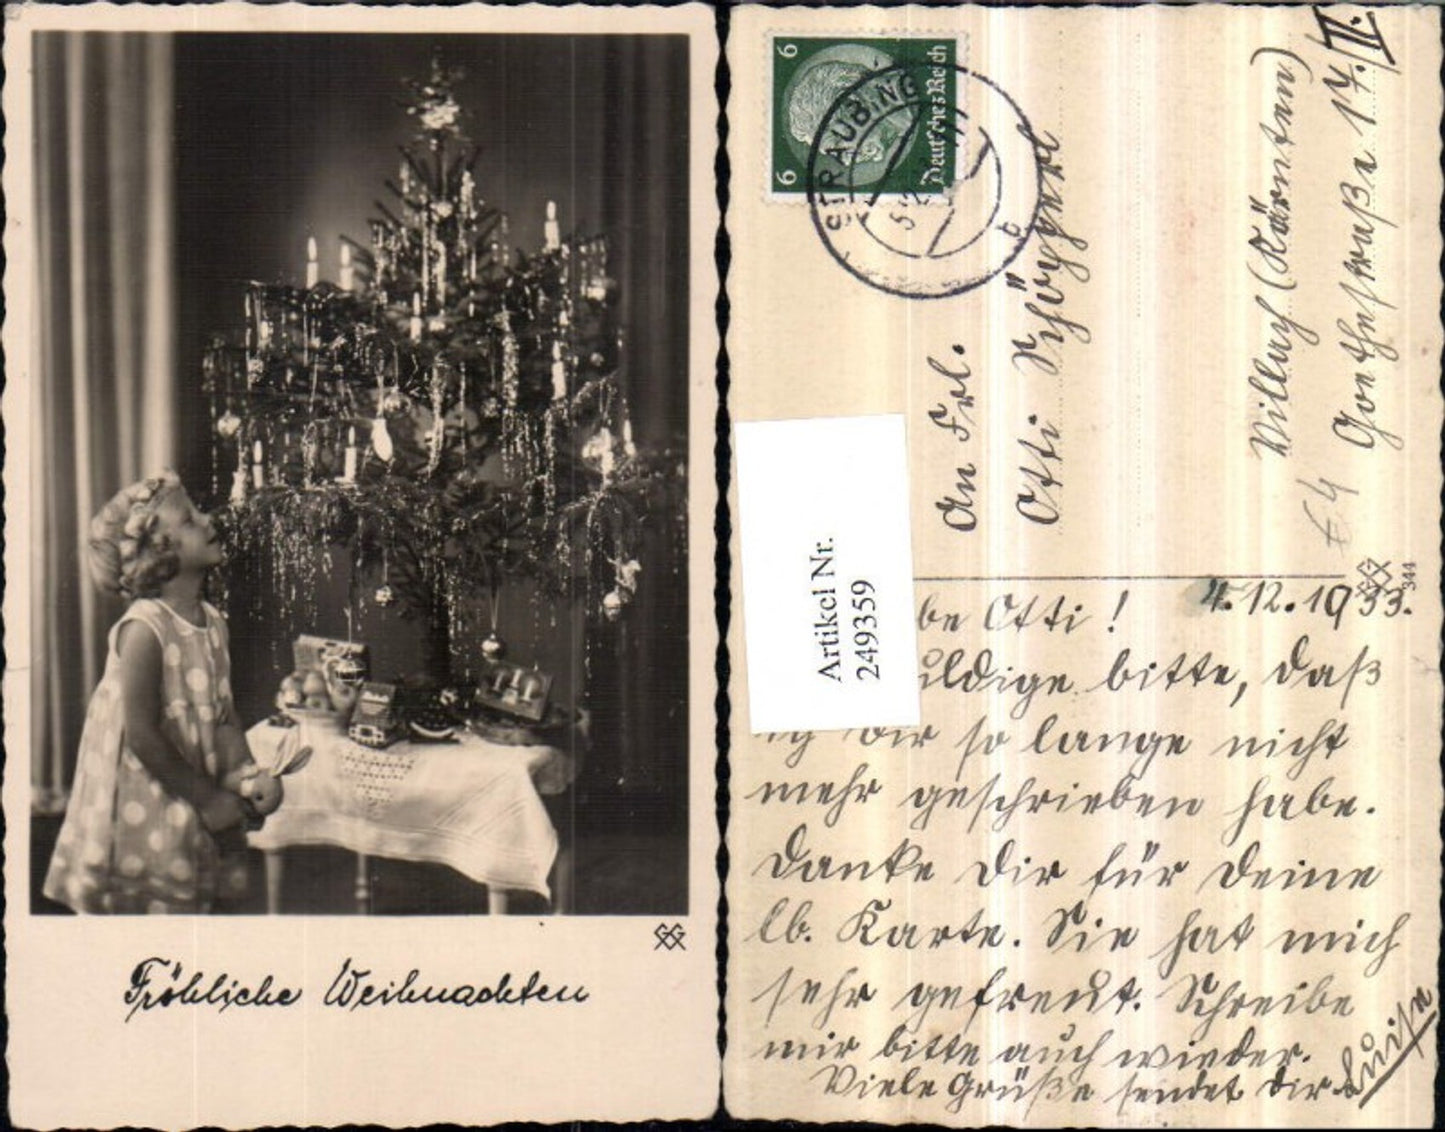 Fröhliche Weihnachten
6
6
Deutsches Reich
STRAUBING
b
An Frl.
Otti
Villach (Kärnten)
Goethestraße 17. II.
Artikel Nr.
249359
344
4.12.1933.
be Otti!
uldige bitte, daß
ich Dir so lange nicht
mehr geschrieben habe.
Danke Dir für Deine
lb. Karte. Sie hat mich
sehr gefreut. Schreibe
mir bitte auch wieder.
Viele Grüße sendet Dir Luise